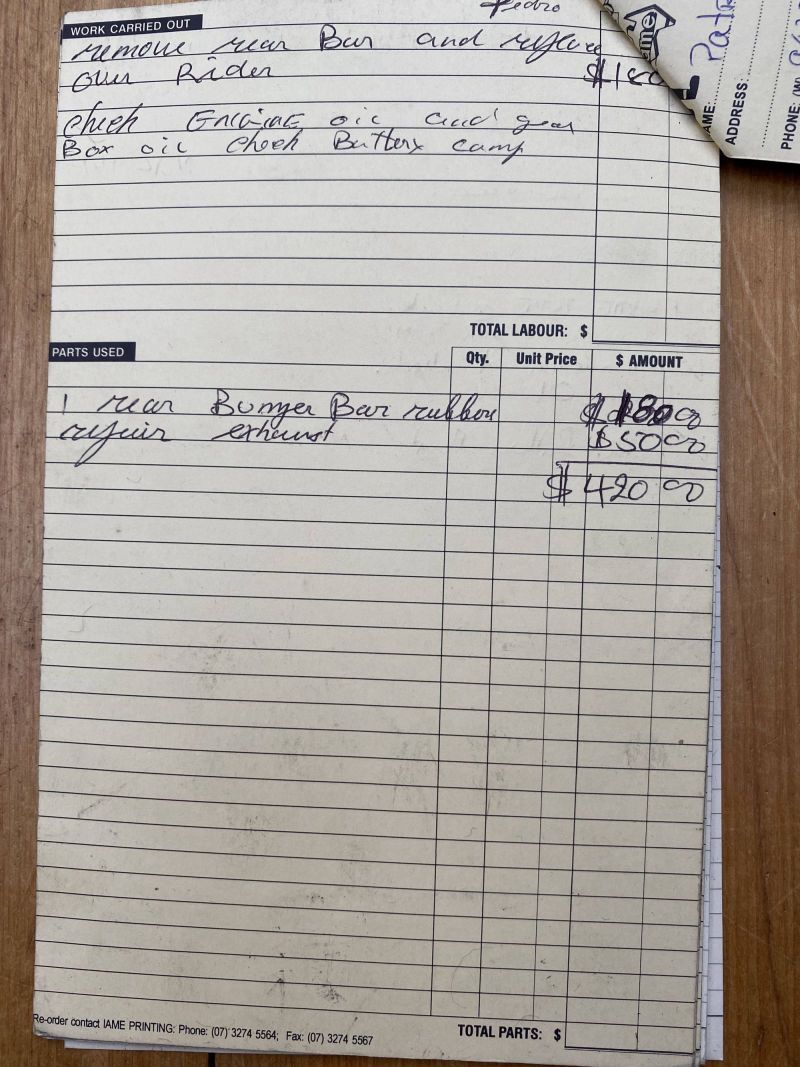 Pedro
WORK CARRIED OUT
remove rear Bar and replace
over Rider $180
check Engine oil and gear
Box oil check Battery
TOTAL LABOUR: $
PARTS USED
Qty. Unit Price $ AMOUNT
1 rear Bumper Bar rubber $ 180 00
repair exhaust $50 00
$ 420 00
Re-order contact IAME PRINTING: Phone: (07) 3274 5564; Fax: (07) 3274 5567
TOTAL PARTS: $
ame
AME:
ADDRESS:
PHONE: